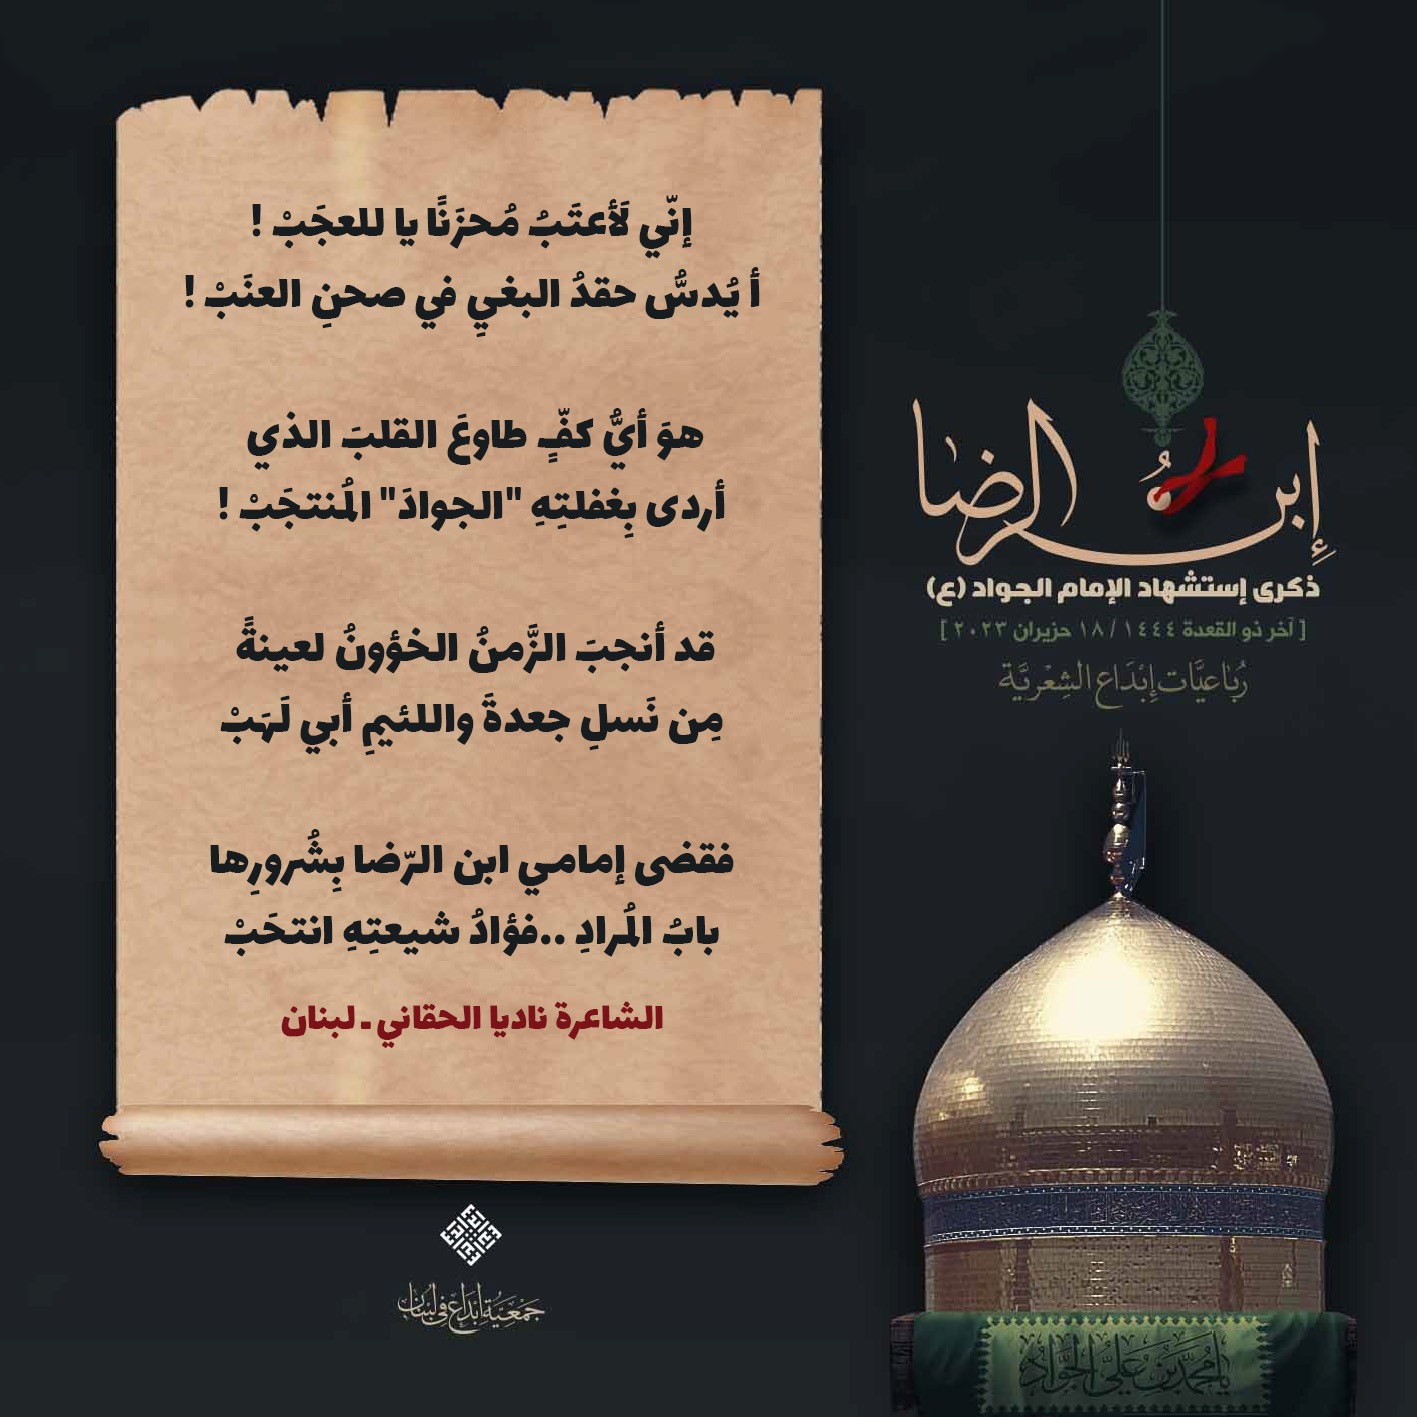 إنّي لَأعتَبُ مُحزَنًا يا للعجَبْ !
أ يُدسُّ حقدُ البغيِ في صحنِ العنَبْ !
هوَ أيُّ كفٍّ طاوعَ القلبَ الذي
أردى بِغفلتِهِ "الجوادَ" المُنتجَبْ !
قد أنجبَ الزَّمنُ الخؤونُ لعينةً
مِن نَسلِ جعدةَ واللئيمِ أبي لَهَبْ
فقضى إمامي ابن الرّضا بِشُرورِها
بابُ المُرادِ ..فؤادُ شيعتِهِ انتحَبْ
الشاعرة ناديا الحقاني ـ لبنان
إبن الرضا
ذكرى إستشهاد الإمام الجواد (ع)
[ آخر ذو القعدة ١٤٤٤ / ١٨ حزيران ٢٠٢٣ ]
رُبَاعيَّات إِبْدَاع الشِعْريَّة
جَمْعِيَّة إِبْدَاع في لبنان
يا محمد بن علي الجواد